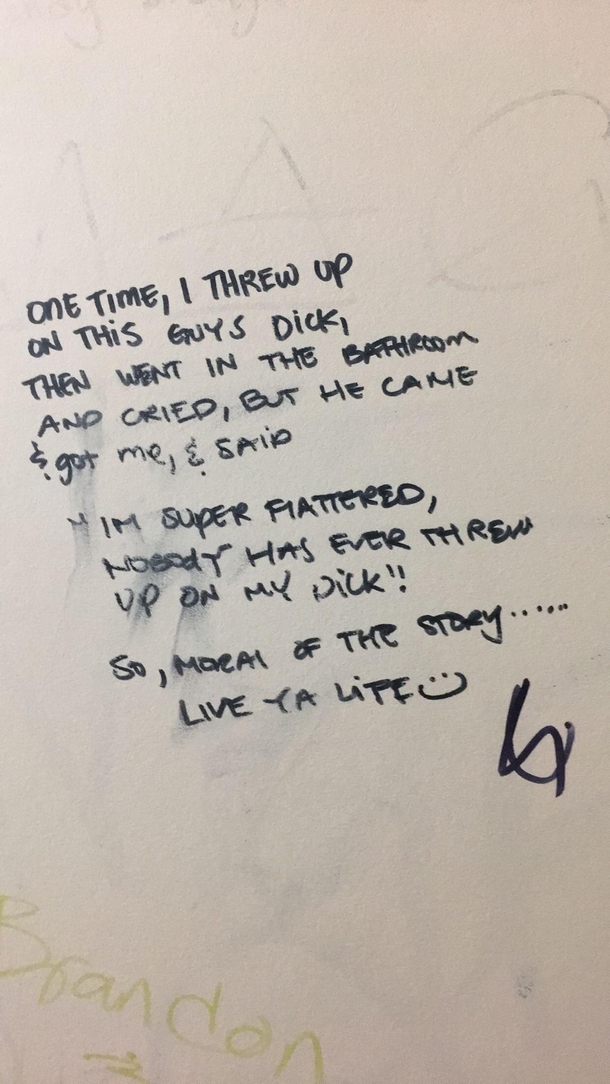 ONE TIME, I THREW UP
ON THIS GUYS DICK,
THEN WENT IN THE BATHROOM
AND CRIED, BUT HE CAME
& got me, & SAID
"IM SUPER FLATTERED,
NOBODY HAS EVER THREW
UP ON MY DICK"!
SO, MORAL OF THE STORY......
LIVE YA LIFE :)
Brandon